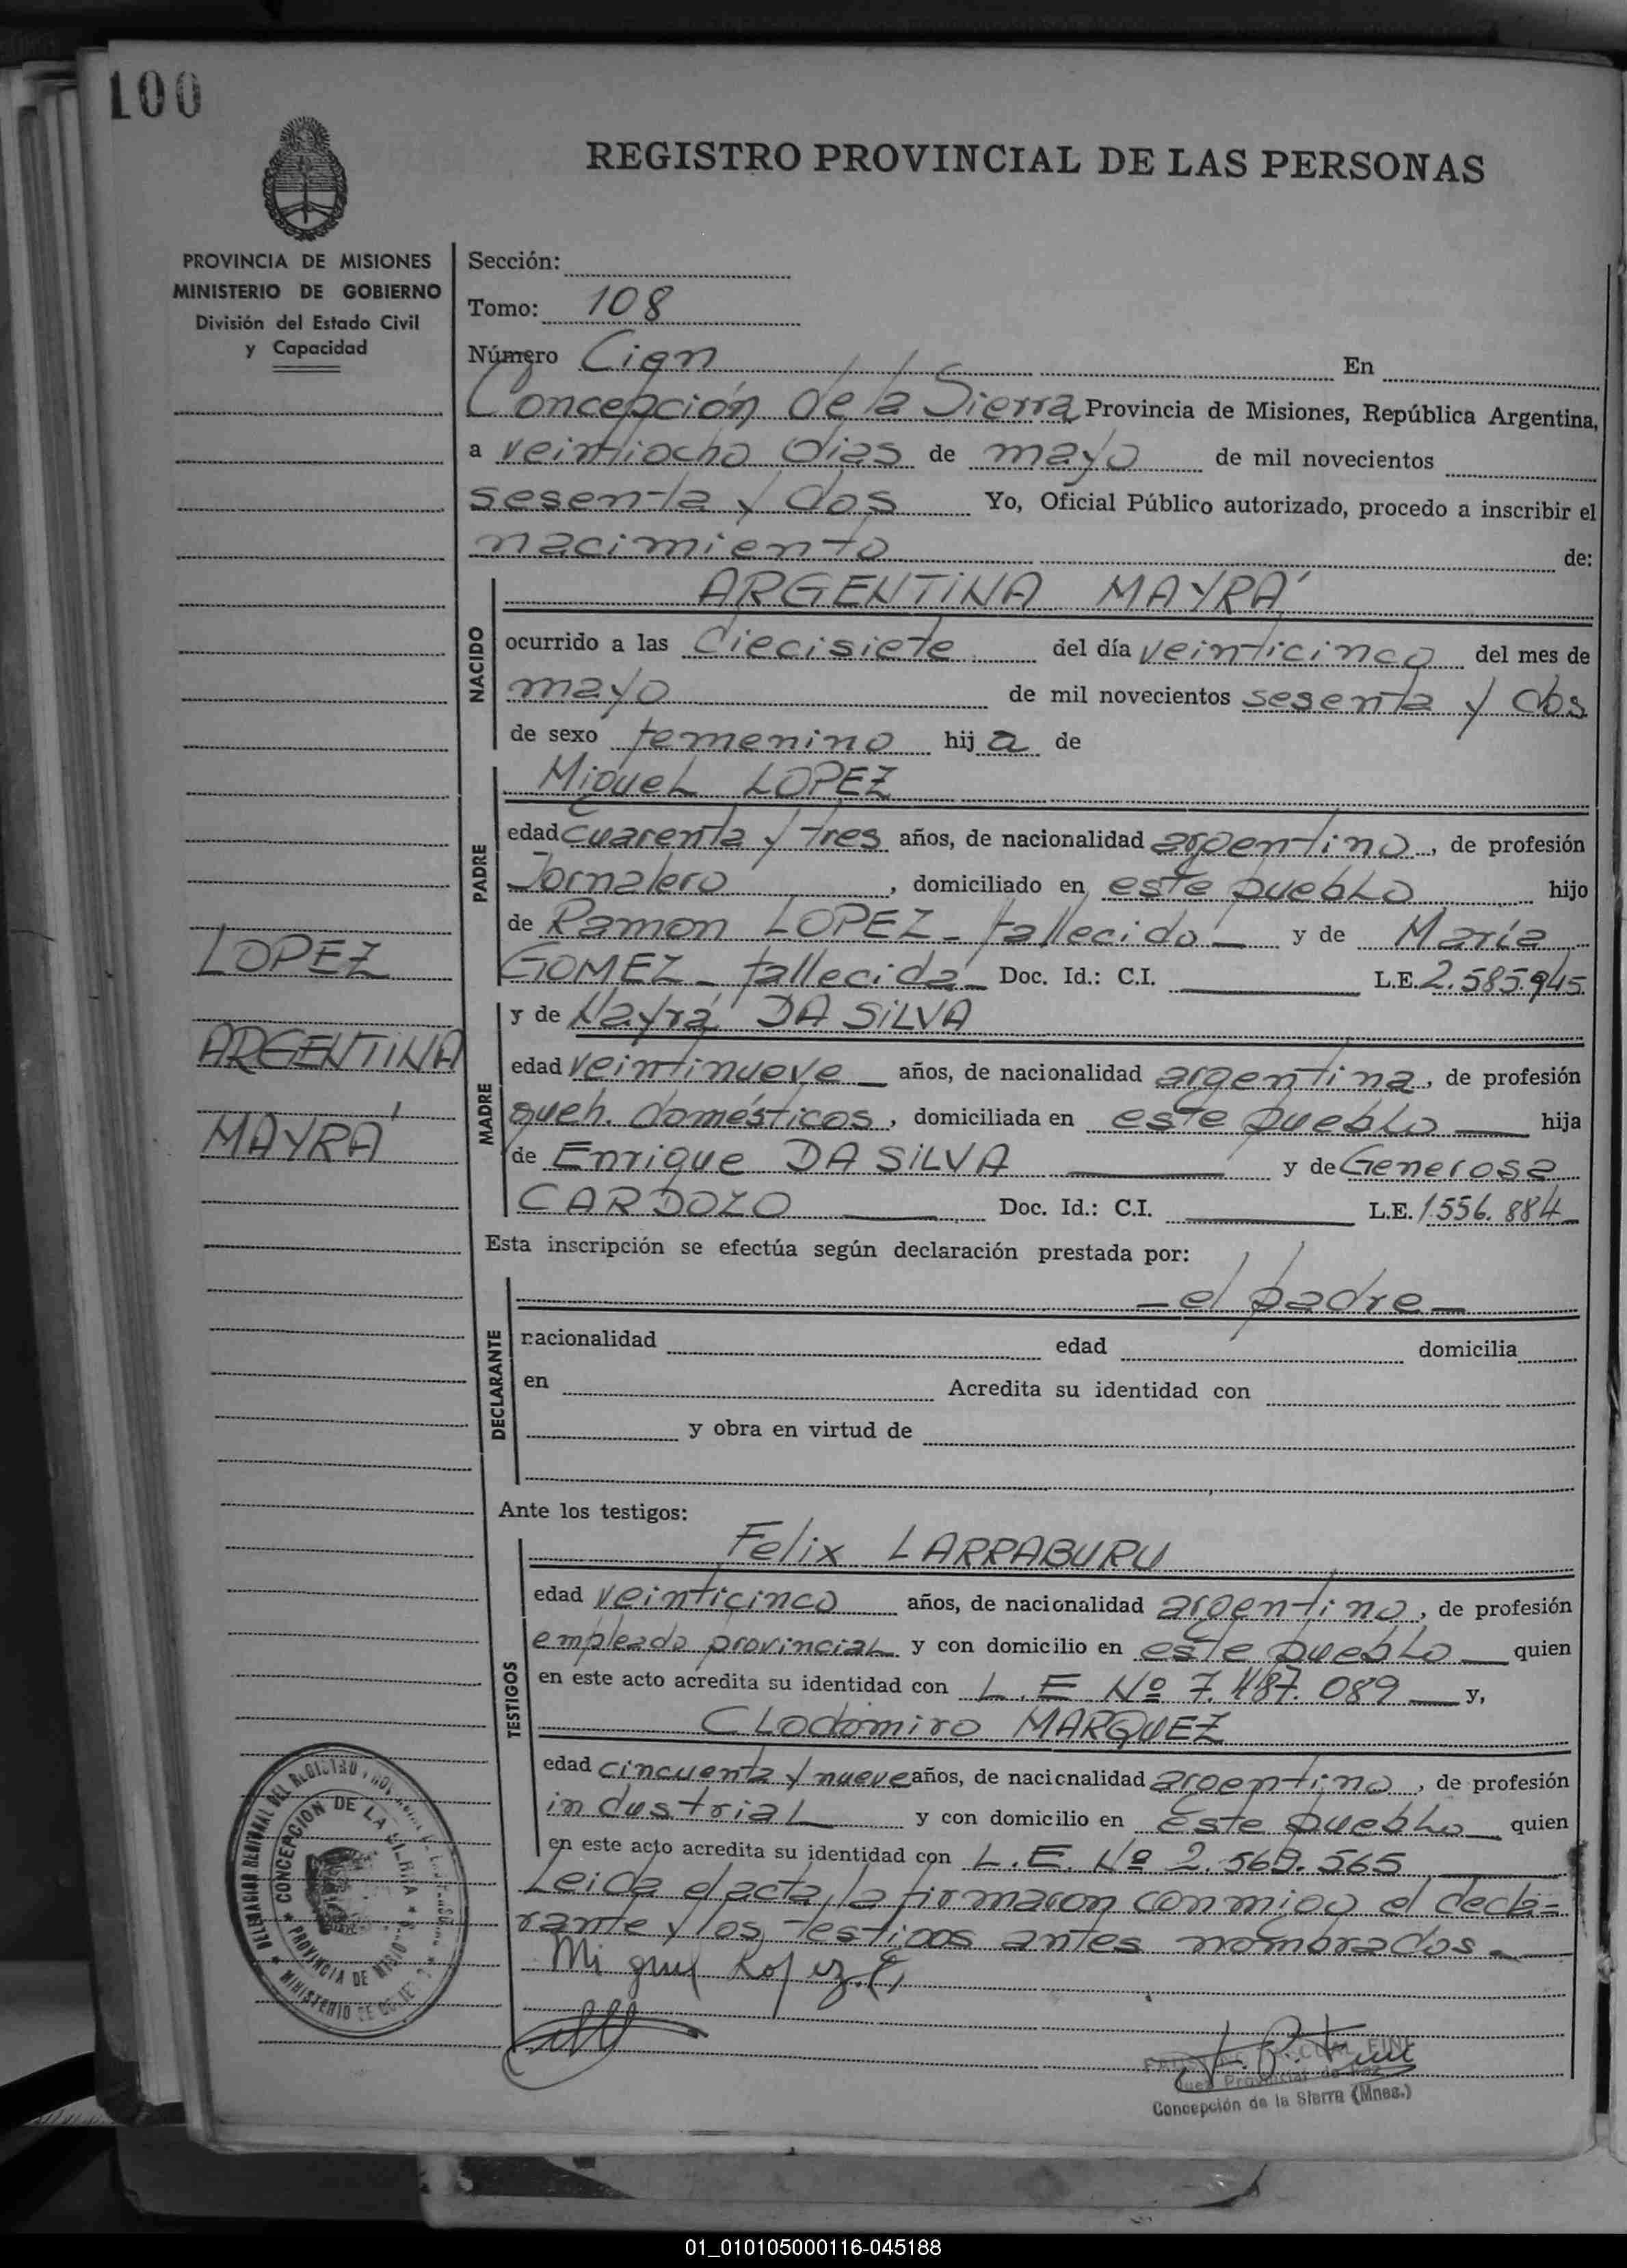 100
REGISTRO PROVINCIAL DE LAS PERSONAS
PROVINCIA DE MISIONES
MINISTERIO DE GOBIERNO
División del Estado Civil
y Capacidad
LOPEZ
ARGENTINA
MAYRÁ
Sección:
Tomo: 108
Número Cien En
Concepción de la Sierra Provincia de Misiones, República Argentina,
a veintiocho dias de mayo de mil novecientos
sesenta y dos Yo, Oficial Público autorizado, procedo a inscribir el
nacimiento de:
NACIDO
ARGENTINA MAYRÁ
ocurrido a las diecisiete del día veinticinco del mes de
mayo de mil novecientos sesenta y dos
de sexo femenino hija de
PADRE
Miguel LOPEZ
edad cuarenta y tres años, de nacionalidad argentino, de profesión
Jornalero, domiciliado en este pueblo hijo
de Ramon LOPEZ - fallecido - y de María
GOMEZ - fallecida - Doc. Id.: C.I. L.E. 2.585.945
MADRE
y de Nayrá DA SILVA
edad veintinueve años, de nacionalidad argentina, de profesión
queh. domésticos, domiciliada en este pueblo hija
de Enrique DA SILVA y de Generosa
CARDOZO Doc. Id.: C.I. L.E. 1.556.884
Esta inscripción se efectúa según declaración prestada por:
DECLARANTE
- el padre -
nacionalidad edad domicilia
en Acredita su identidad con
y obra en virtud de
Ante los testigos:
TESTIGOS
Felix LARRABURU
edad veinticinco años, de nacionalidad argentino, de profesión
empleado provincial y con domicilio en este pueblo quien
en este acto acredita su identidad con L.E Nº 7.487.089 y,
Clodomiro MARQUEZ
edad cincuenta y nueve años, de nacionalidad argentino, de profesión
industrial y con domicilio en este pueblo quien
en este acto acredita su identidad con L.E. Nº 2.569.565
Leida el acta, la firmaron conmigo el decla=
rante y los testigos antes nombrados.-
Miguel Lopez
CONCEPCION DE LA SIERRA
PROVINCIA DE
MINISTERIO DE
Concepción de la Sierra (Mnes.)
01_010105000116-045188